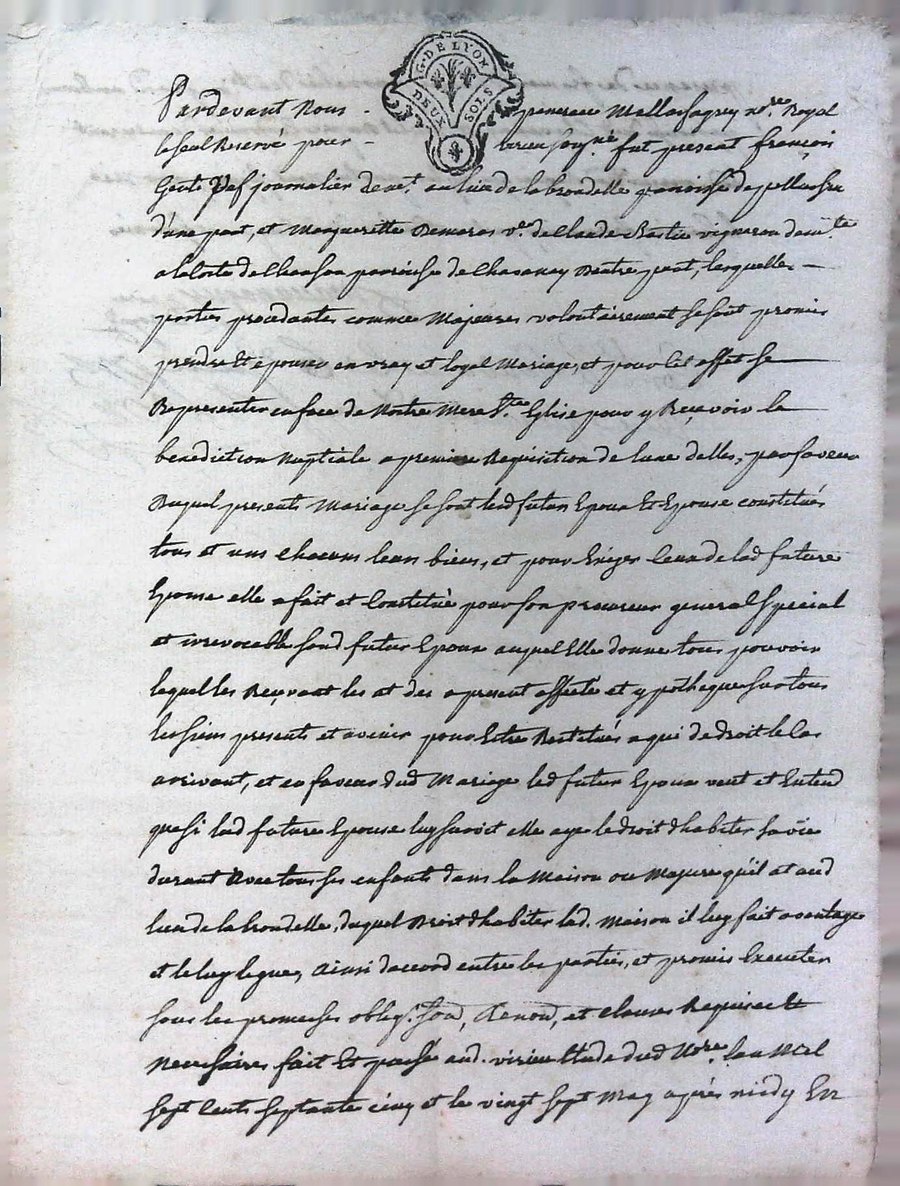 G. DE LYON
DEUX SOLS
Pardevant Nous - Royal
le seel Reservé pour - fut present françois
journalier demt. au lieu de la brondelle paroisse de pellussin
d'une part, et Margueritte Demaras ve. de Claude Bastie vigneron demte.
a la Coste de Chanson paroisse de Chavanay Dautre part, lesquelles -
parties procedantes comme Majeures volontairement se sont promis
prendre Et epouser en vray et loyal Mariage, et pour cet effet se
Representer en face de Nostre Mere Ste. Eglise pour y Reçevoir la
benediction Nuptiale a premiere Requisition de l'une d'elles, par faveur
Duquel presents Mariage se sont lesd futurs Epoux Et Epouse constitués
tous et uns chacuns leurs biens, et pour Exiger Ceux de lad future
Epouse elle a fait et Constitué pour son procureur general Special
et irrevocable sond futur Epoux auquel Elle donne tous pouvoir
lequel les Reçevant les at des apresent affecté et ypothequé sur tous
les siens presents et avenir pour Estre Restitués a qui de droit le Cas
arrivant, et en faveur dud Mariage led futur Epoux veut et Entend
que si lad future Epouse luy survit elle aye le droit d'habiter sa vie
durant Avec tous ses enfants dans la Maison ou Masure qu'il at aud
lieu de la brondelle, duquel Droit d'habiter lad. Maison il luy fait avantage
et le luy legue, Ainsi d'accord entre les parties, et promis Executer
sous les promesses oblig. soud, Renond, et clauses Requises Et
Necessaires fait Et passé aud. virieu Etude dud Nore. lan Mil
sept Cents septante cinq et le vingt sept May après midy En